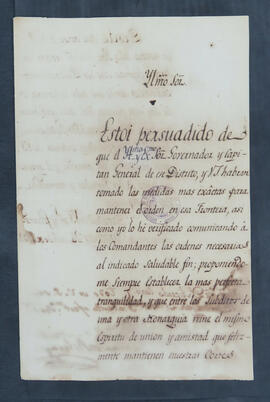 Yllmo Sor.
Estoi persuadido de
que el Sor. Governador y Capi-
tan General de ese Distrito, y VS habran
tomado las medidas mas exâctas para
mantener el orden en esa Frontera, asi
como yo lo hé verificado comunicando à
los Comandantes las ordenes necesarias
al indicado saludable fin; proponiendo-
me siempre establecer la mas perfecta
tranquilidad, y que entre los Subditos de
una y otra Monarquia reine el mismo
Espiritu de union y amistad que feliz-
mente mantienen nuestras Cortes